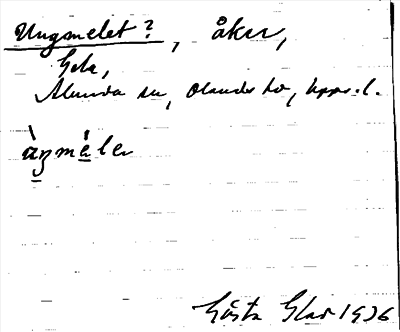 Ungmelet?, åker,
Gela,
Alunda sn, Olands hd, Upps. l.
àŋmèle
Gösta Glas 1926